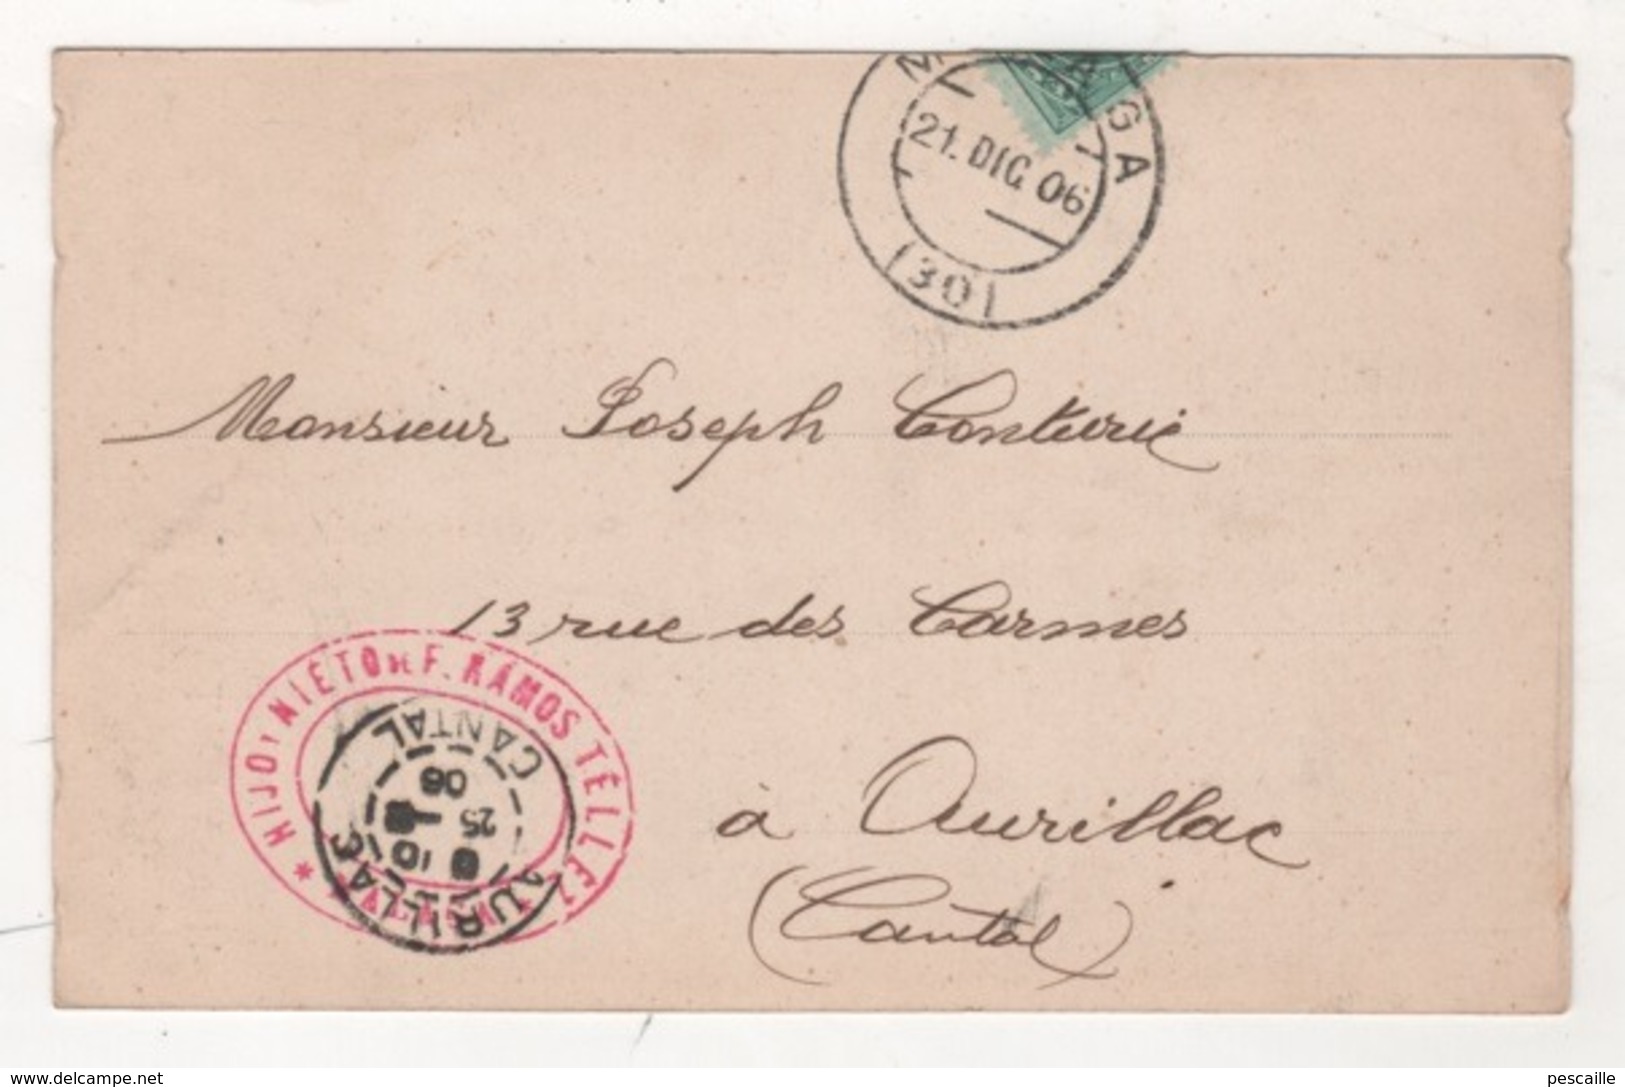 MALAGA
21. DIC 06
(30)
Monsieur Joseph Conturie
13 rue des Carmes
à Aurillac
(Cantal)
HIJO Y NIÉTO DE F. RAMOS TÉLLEZ
AURILLAC
CANTAL
10
25
06
www.delcampe.net
pescaille